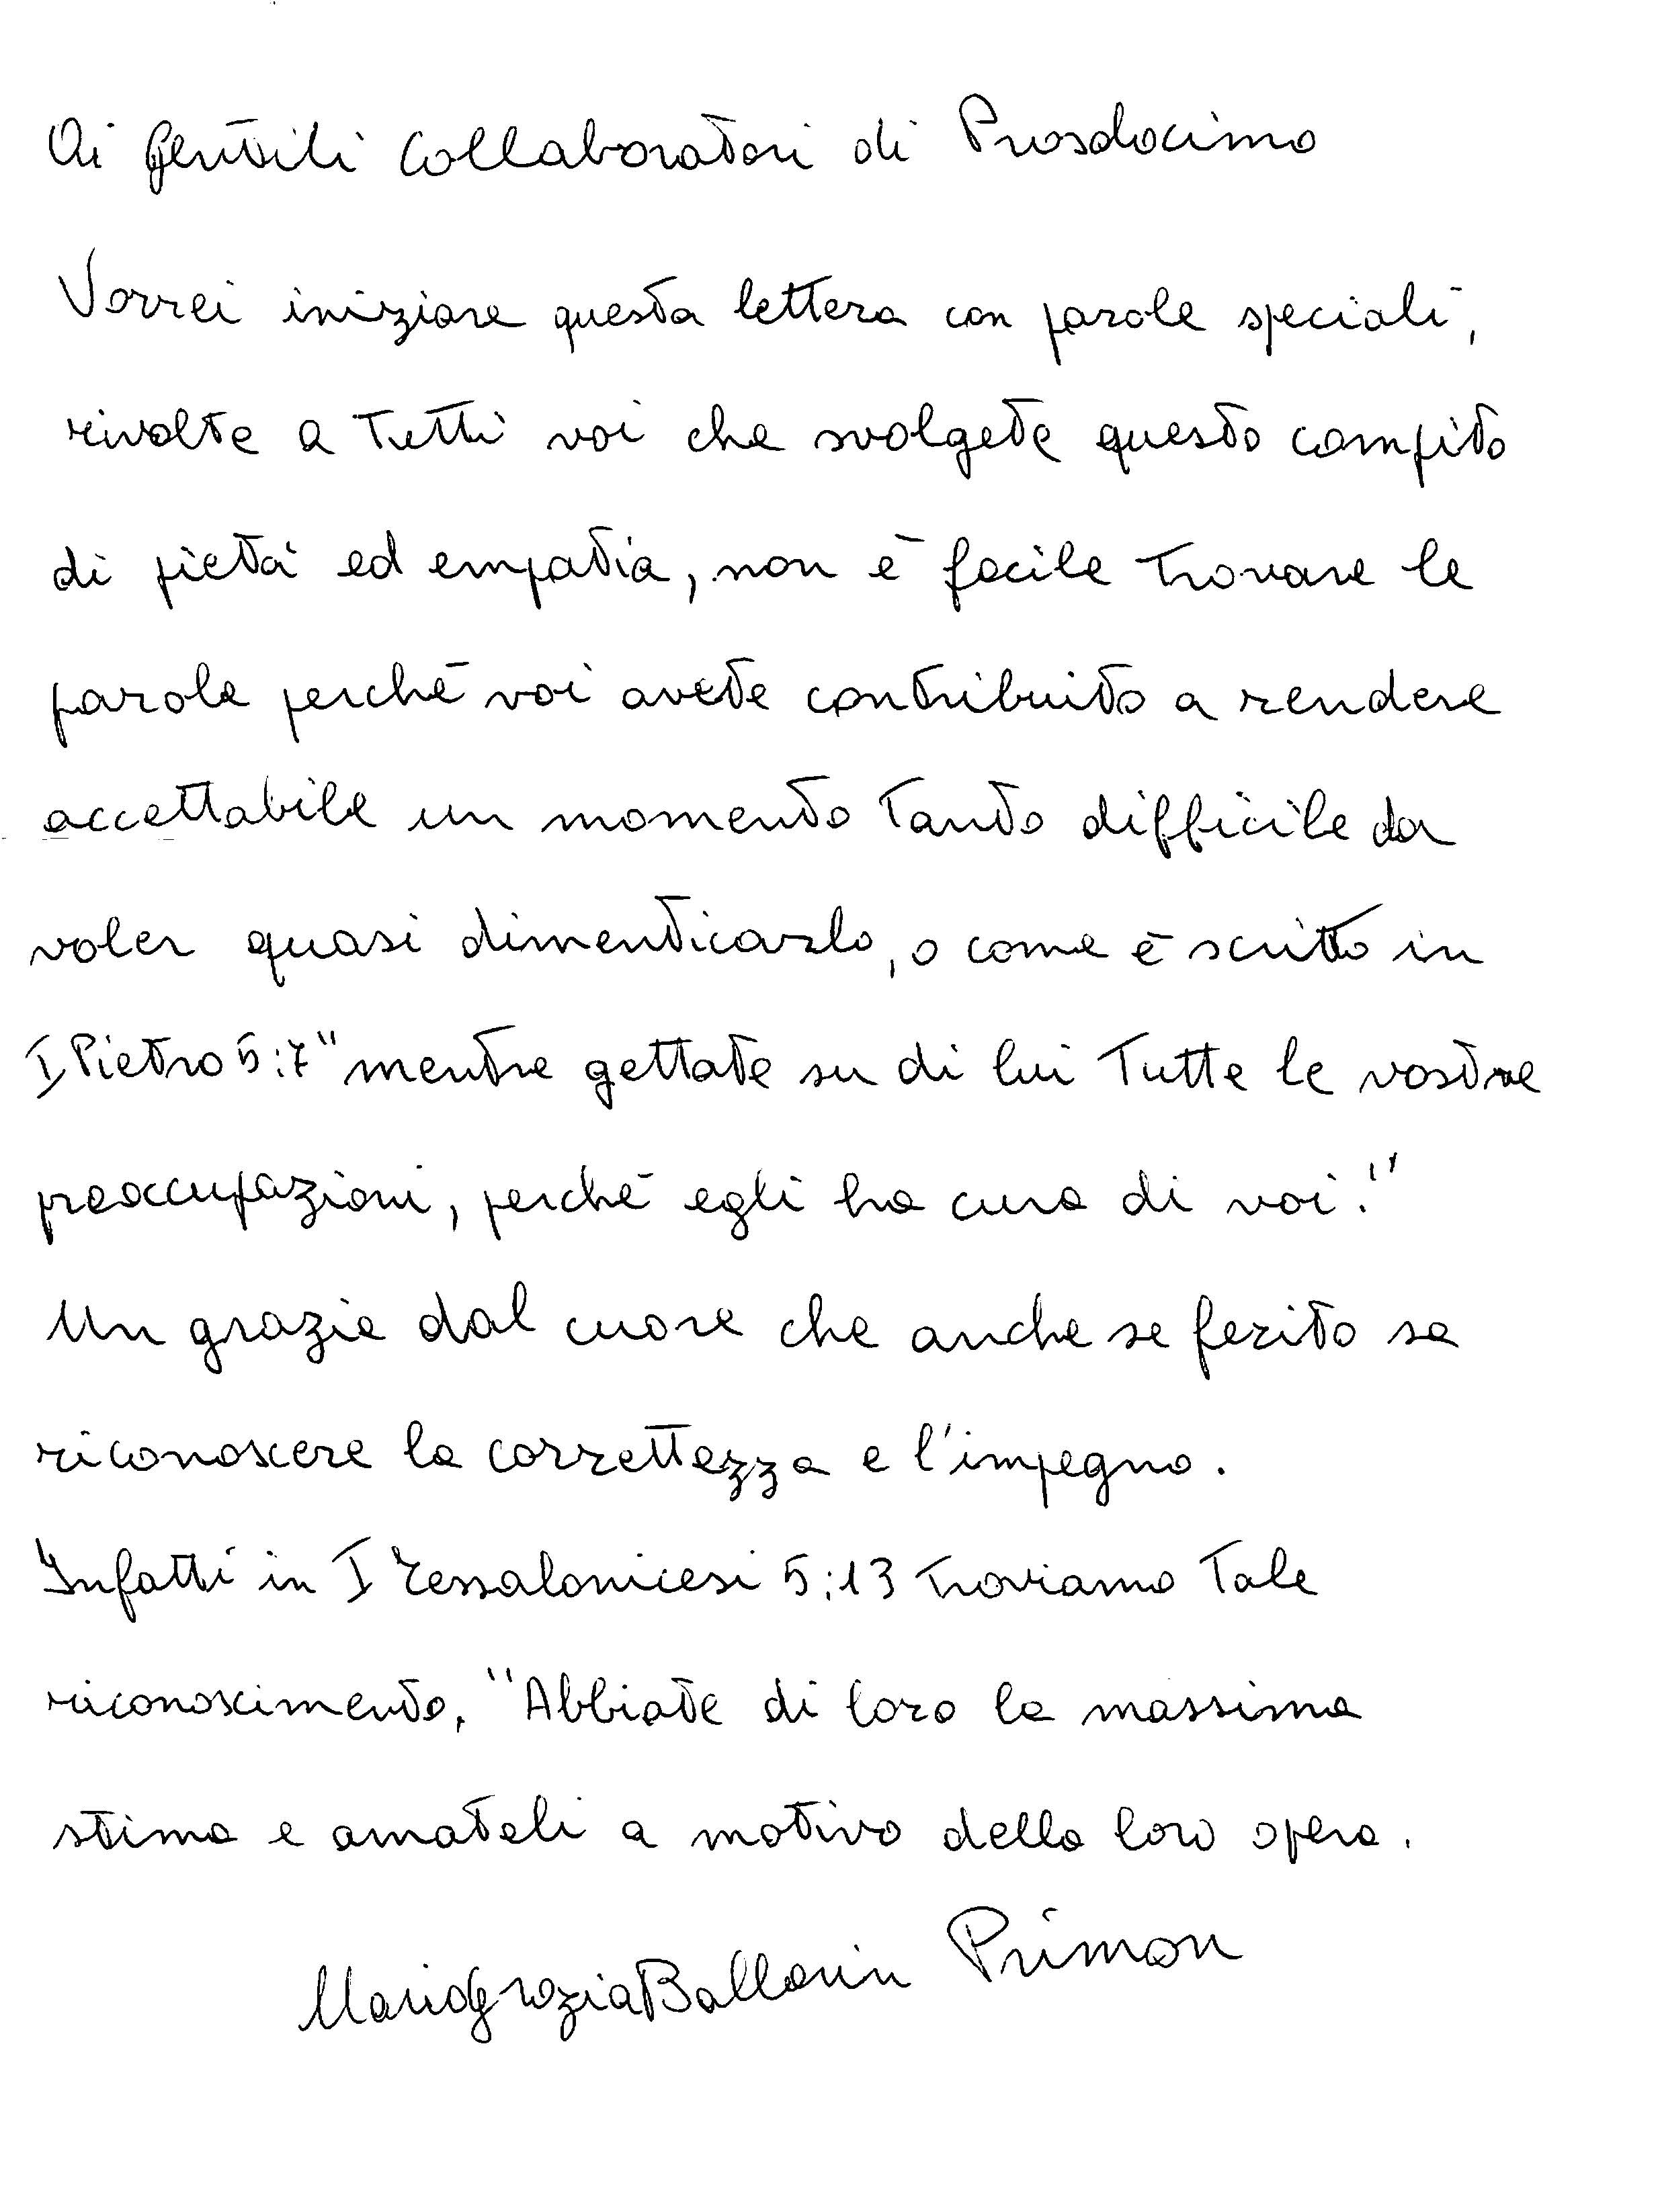 Ai Gentili Collaboratori di Prosdocimo
Vorrei iniziare questa lettera con parole speciali,
rivolte a tutti voi che svolgete questo compito
di pietà ed empatia, non è facile trovare le
parole perché voi avete contribuito a rendere
accettabile un momento tanto difficile da
voler quasi dimenticarlo, o come è scritto in
I Pietro 5:7 "mentre gettate su di lui tutte le vostre
preoccupazioni, perché egli ha cura di voi."
Un grazie dal cuore che anche se ferito sa
riconoscere la correttezza e l'impegno.
Infatti in I Tessalonicesi 5:13 troviamo tale
riconoscimento. "Abbiate di loro la massima
stima e amateli a motivo della loro opera.
Mariagrazia Ballarin Primon